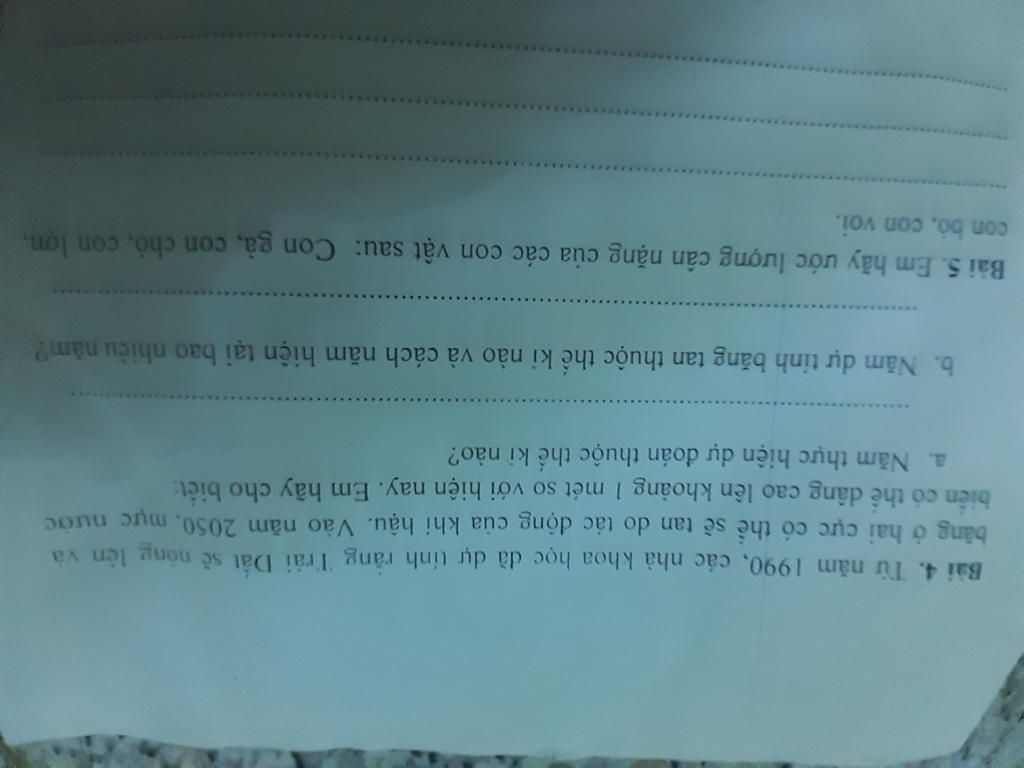 Bài 4. Từ năm 1990, các nhà khoa học đã dự tính rằng Trái Đất sẽ nóng lên và
băng ở hai cực có thể sẽ tan do tác động của khí hậu. Vào năm 2050, mực nước
biển có thể dâng cao lên khoảng 1 mét so với hiện nay. Em hãy cho biết:
a. Năm thực hiện dự đoán thuộc thế kỉ nào?
b. Năm dự tính băng tan thuộc thế kỉ nào và cách năm hiện tại bao nhiêu năm?
Bài 5. Em hãy ước lượng cân nặng của các con vật sau: Con gà, con chó, con lợn,
con bò, con voi.